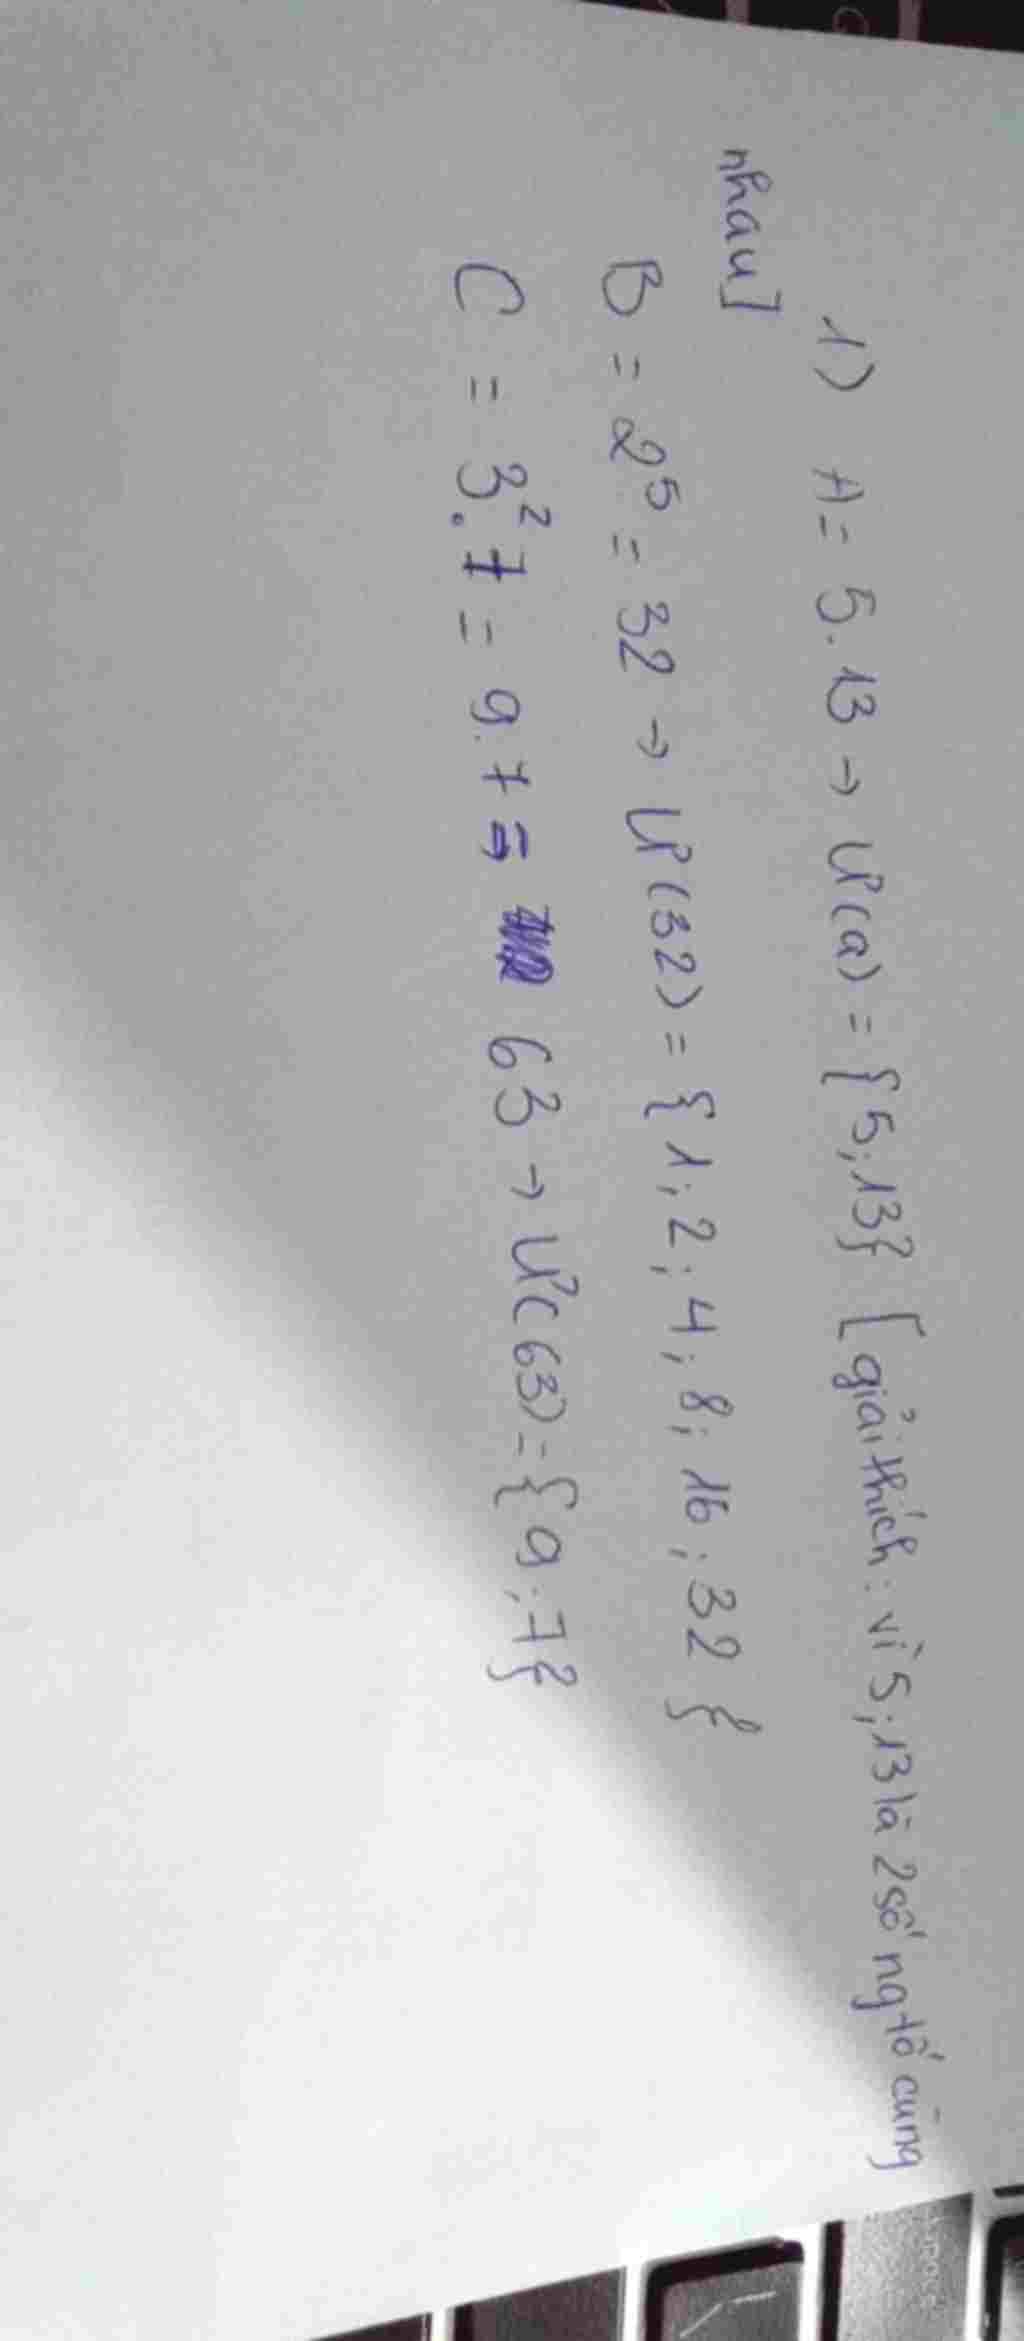 1) A = 5.13 → Ư(a) = {5;13} [giải thích: vì 5;13 là 2 số ng tố cùng
nhau]
B = 2⁵ = 32 → Ư(32) = {1; 2; 4; 8; 16; 32}
C = 3².7 = 9.7 = 63 → Ư(63) = {9;7}